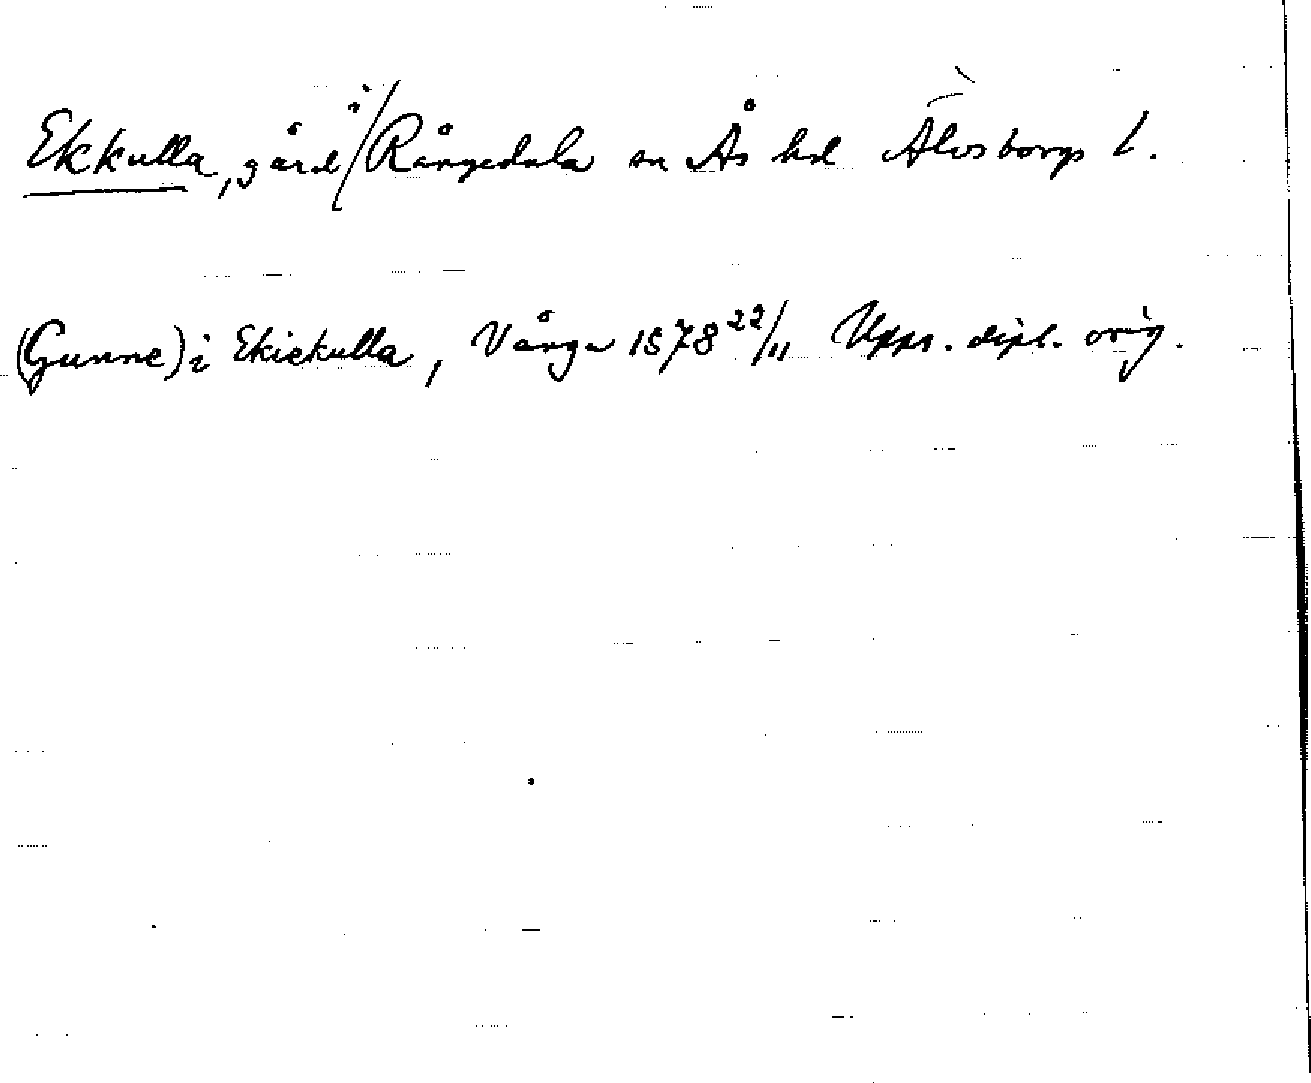 Ekkulla, gård i/Rångedala sn Ås hd Älvsborgs l.
(Gunne) i Ekiekulla, Vånga 1578 22/11 Upps. dipl. orig.